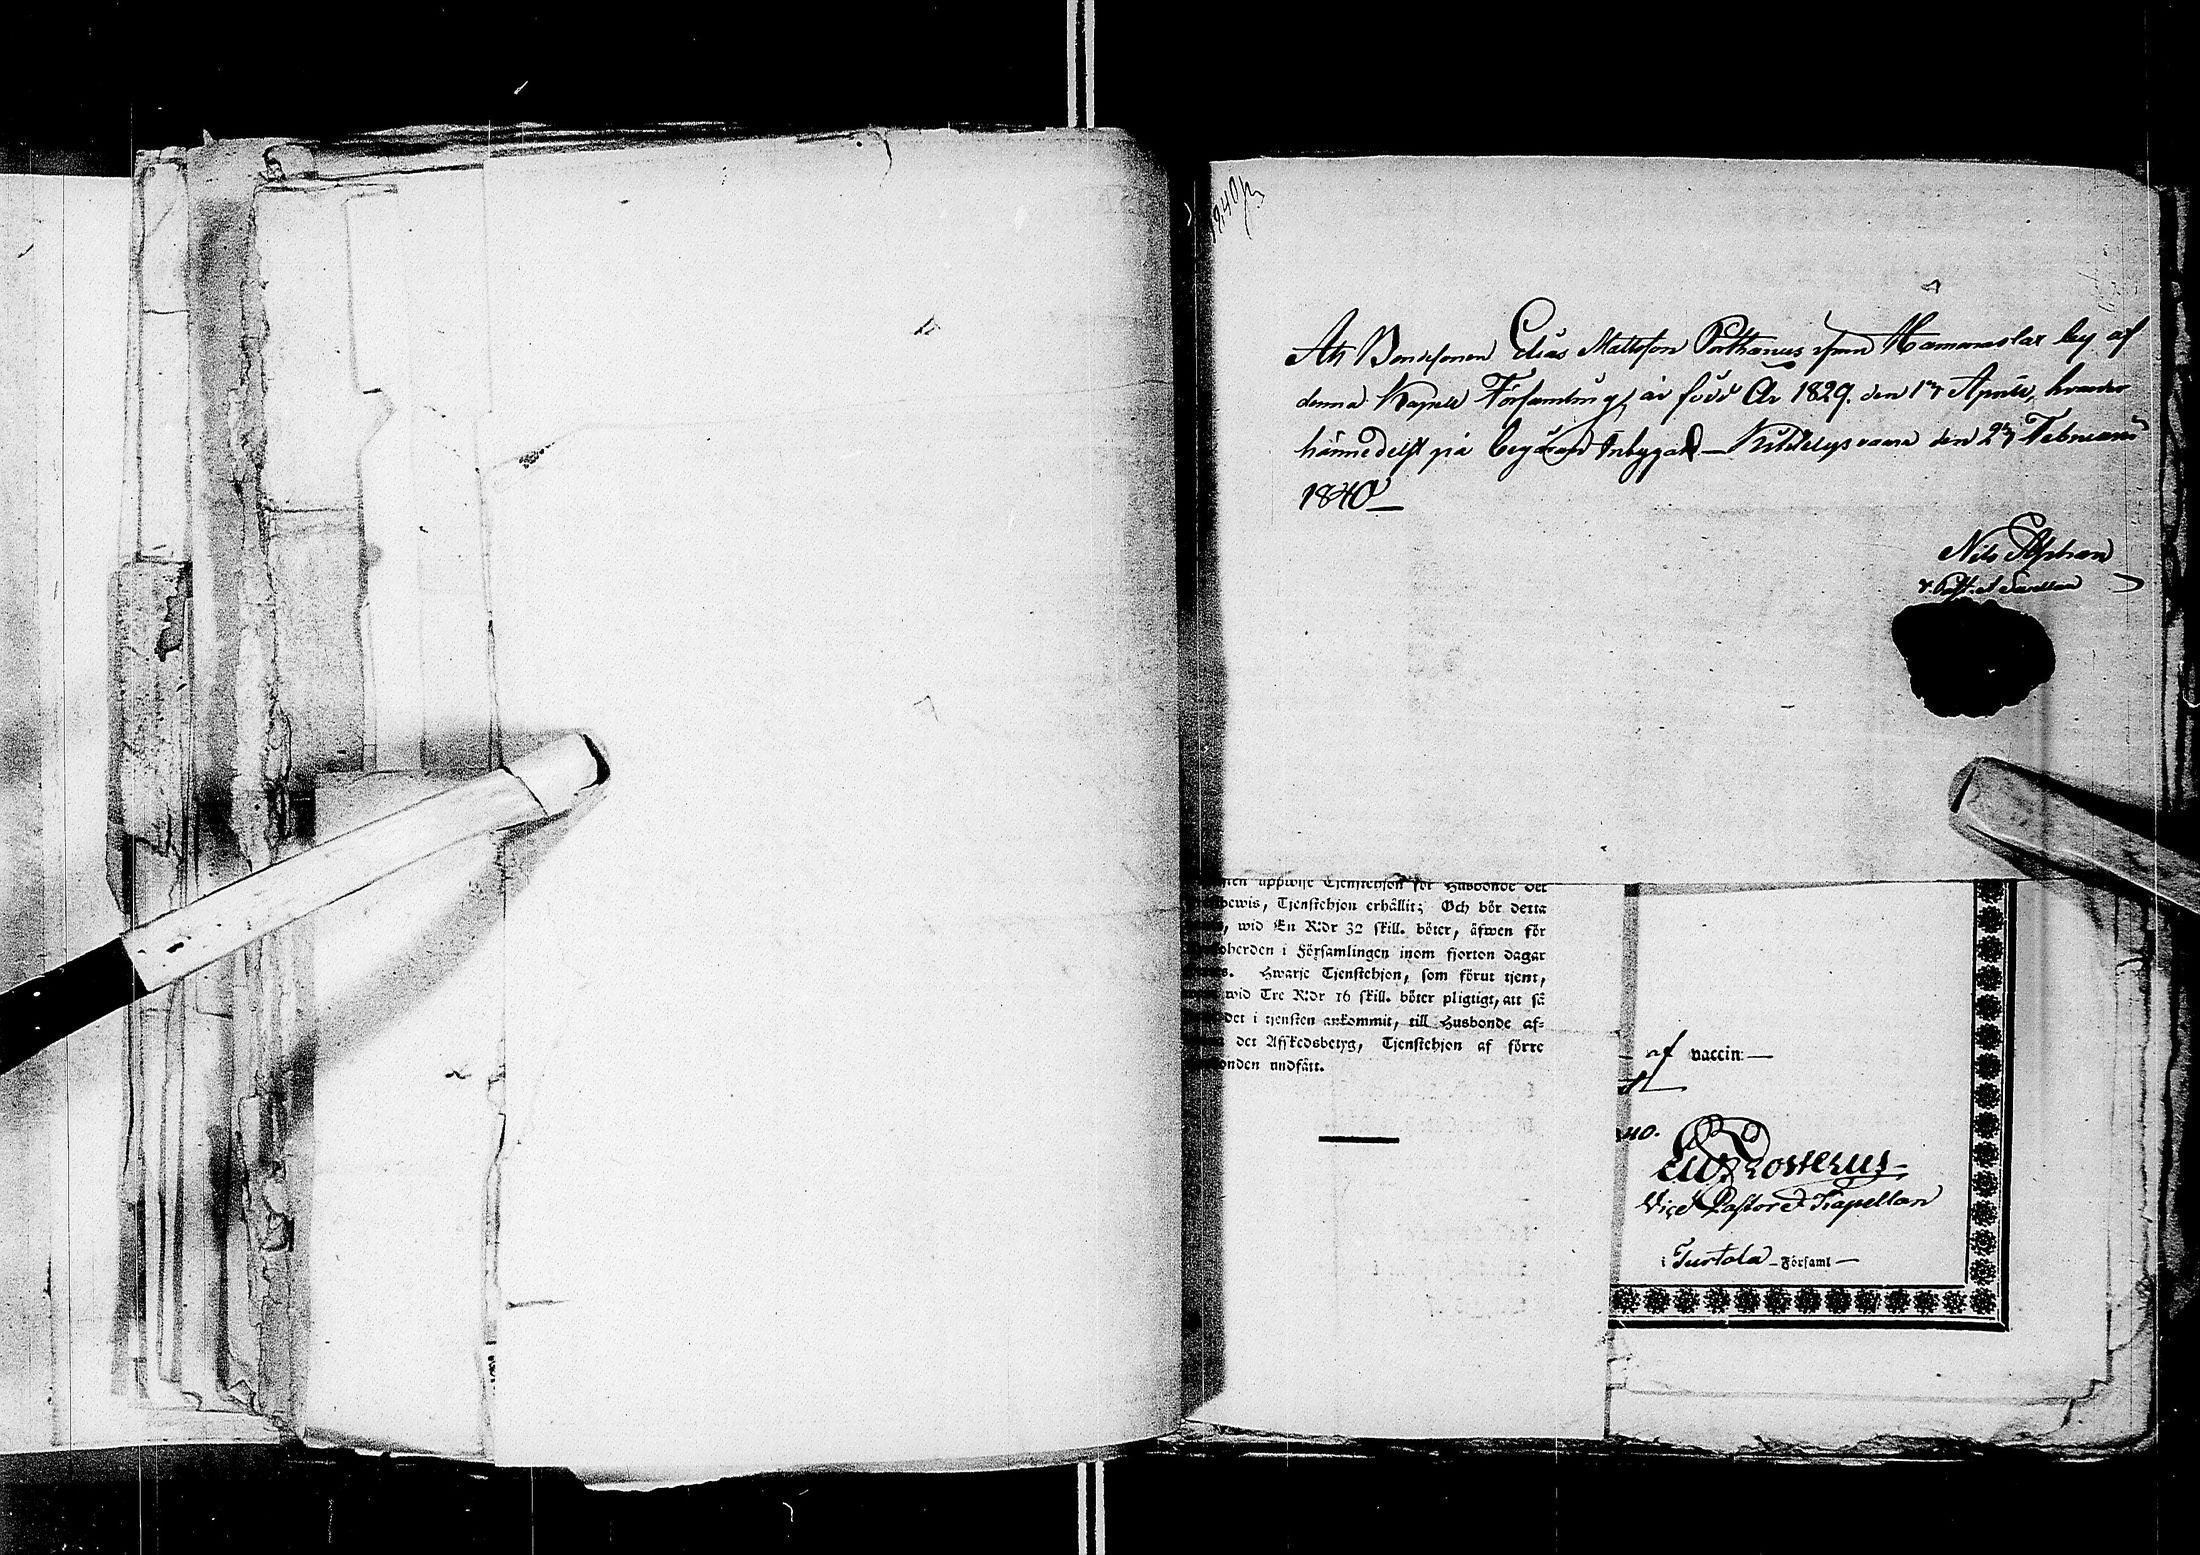 Att Bondesonen Elias Mattsson Porthanus ifrån Hamaraslax by af
denna Kapell Församling, är född År 1829. den 1 April, hvarder
härmedelst på begäran Inbygat — Kihlelysvaara den 27 Februarii
1840 —
Nils
v. Past. Capellan
uppwise Tjenstehjon för Husbonde det
bewis, Tjenstehjon erhållit; Och bör detta
, wid En R:dr 32 skill. böter, äfwen för
oherden i Församlingen inom fjorton dagar
s. Hwarje Tjenstehjon, som förut tjent,
wid Tre R:dr 16 skill. böter pligtigt, att så
det i tjensten ankommit, till Husbonde af-
det Afskedsbetyg, Tjenstehjon af förre
onden undfått.
— af vaccin: —
40.
Costerus
Vice Pastor & Kapellan
i Turtola — Församl —